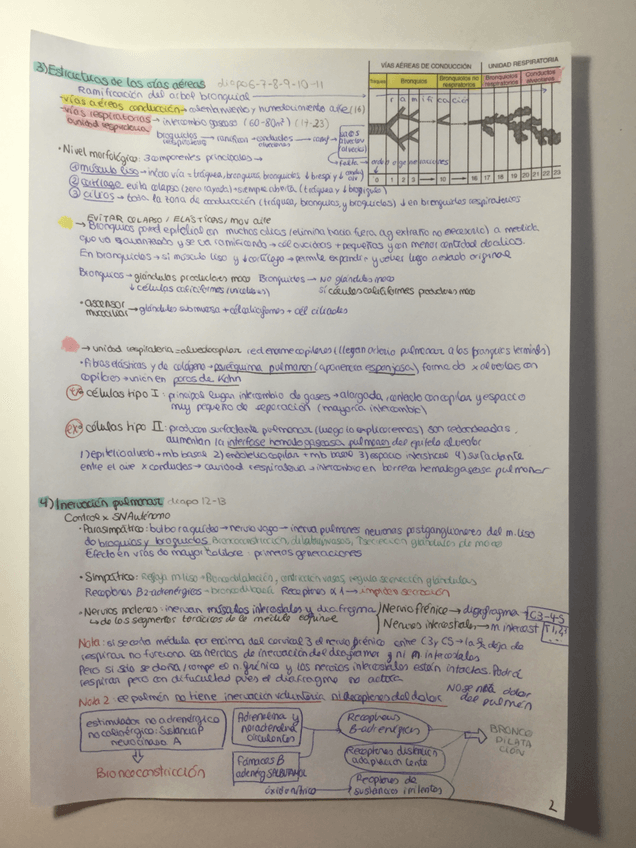 3) Estructuras de las vías aéreas diapo 6-7-8-9-10-11
Ramificación del árbol bronquial
VÍAS AÉREAS DE CONDUCCIÓN
UNIDAD RESPIRATORIA
Tráquea
Bronquios
Bronquiolos no respiratorios
Bronquiolos respiratorios
Conductos alveolares
ramificación
0 1 2 3 10 16 17 18 19 20 21 22 23
vías aéreas conducción → calentamiento y humedecimiento aire (16)
vías respiratorias → intercambio gaseoso (60-80m²) (17-23)
o unidad respiratoria
bronquiolos respiratorios → ramifican → conductos alveolares →
sacos alveolares (alveolos)
• Nivel morfológico: 3 componentes principales →
① músculo liso → inicio vía = tráquea, bronquios bronquiolos ↓ bresp y ↓
② cartílago evita colapso (zona rígida) → siempre abierta (tráquea y
③ cilios → toda la zona de conducción (tráquea, bronquios, y bronquiolos) ↓ en bronquiolos respiratorios
EVITAR COLAPSO / ELÁSTICAS / mov aire
→ Bronquios pared epitelial con muchos cilios (elimina hacia fuera ag extraño no necesario) a medida
que va avanzando y se va ramificando → cél cuboideas + pequeñas y con menor cantidad de cilios.
En bronquiolos → sí músculo liso y ↓ cartílago → permite expandir y volver luego a estado original
Bronquios → glándulas productoras moco Bronquiolos → No glándulas moco
↓ células caliciformes (unicelulares) sí células caliciformes productoras moco
• ascensor mucociliar → glándulas submucosa + cél caliciformes + cél ciliadas
→ unidad respiratoria = alveolocapilar red enorme capilares (llegan arteria pulmonar a los bronquios terminales)
• Fibras elásticas y de colágeno → parénquima pulmonar (apariencia esponjosa) formado x alveolos con
capilares → unión en poros de Kohn
células tipo I: principal lugar intercambio de gases → alargada, contacto con capilar y espacio
muy pequeño de separación (mayoría intercambio)
células tipo II: producen surfactante pulmonar (luego lo explicaremos) son redondeadas,
aumentan la interfase hematogaseosa pulmonar del epitelio alveolar
1) epitelio alveolo + mb basal 2) endotelio capilar + mb basal 3) espacio intersticial 4) surfactante
entre el aire x conductos → cavidad respiratoria → intercambio en barrera hematogaseosa pulmonar
4) Inervación pulmonar diapo 12-13
Control x SN Autónomo
• Parasimpático: bulbo raquídeo → nervio vago → inerva pulmones neuronas postganglionares del m. liso
de bronquios y bronquiolos Broncoconstricción, dilata vasos, ↑ secreción glándulas de moco
Efecto en vías de mayor calibre: primeras generaciones
• Simpático: Relaja m liso → Broncodilatación, contricción vasos, regula secreción glándulas
Receptores B2-adrenérgicos → broncodilata Receptores α1 → impide secreción
• Nervios motores: inervan músculos intercostales y diafragma
↳ de los segmentos torácicos de la médula espinal
Nervio frénico → diafragma → C3-4-5
Nervios intercostales → m intercost T1,2,...
Nota: si se corta médula por encima del cervical 3 el nervio frénico entre C3 y C5 → la p. deja de
respirar no funciona los nervios de inervación del diafragma y ni m intercostales
Pero si sólo se daña/rompe el n. frénico y los nervios intercostales están intactos. Podrá
respirar pero con dificultad pues el diafragma no actúa
Nota 2: el pulmón no tiene inervación voluntaria, ni receptores del dolor
No se nota dolor del pulmón
estimulador no adrenérgico no colinérgico: sustancia P neurocinina A
Broncoconstricción
Adrenalina y noradrenalina circulantes
Fármacos B adrenérg SALBUTAMOL
óxido nítrico
Receptores B-adrenérgicos
Receptores distensión adaptación lenta
Receptores de sustancias irritantes
BRONCODILATACIÓN
2